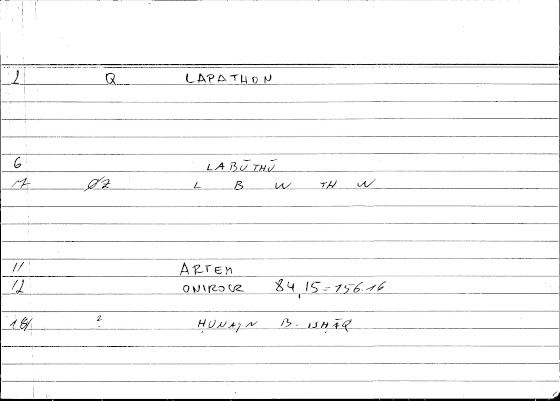 1 Q LAPATHON
6 LABŪTHŪ
7 ØZ L B W TH W
11 ARTEM
12 ONIROCR 84,15=156.16
18 ? ḤUNAYN B. ISḤĀQ